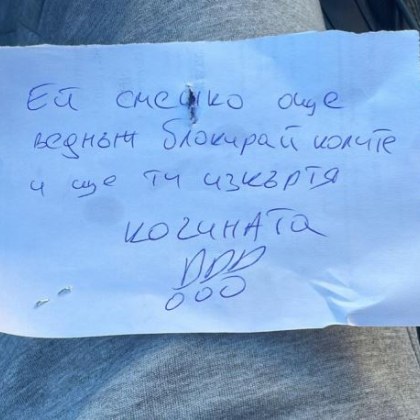 Ей смешко още
веднъж блокирай колите
и ще ти изкъртя
кочината
DDD
ооо